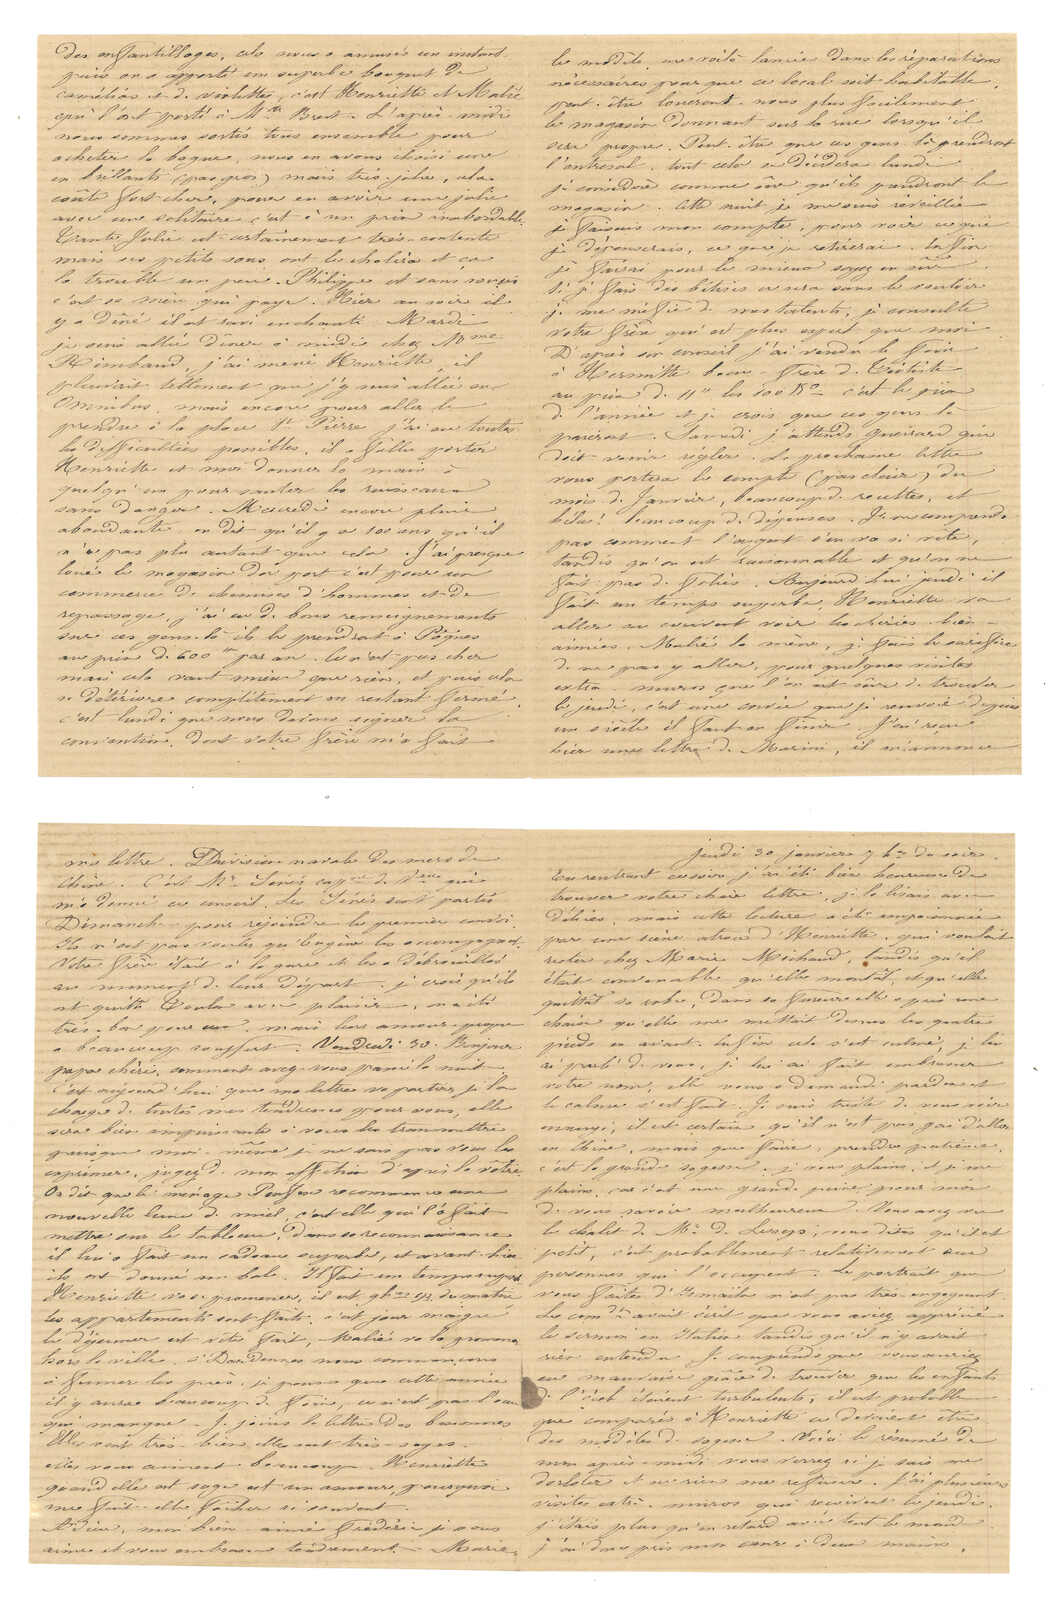 des enfantillages, cela nous a amusés un instant
puis on a apporté un superbe bouquet de
camélias et de violettes, c'est Henriette et Malié
qui l'ont porté à Mlle Brest. L'après-midi
nous sommes sortis tous ensemble pour
acheter la bague, nous en avons choisi une
en brillants (pas gros) mais très-jolie, cela
coûte fort cher, pour en avoir une jolie
avec un solitaire c'est à un prix inabordable
Tante Julie est certainement très-contente
mais ses petits sous ont le choléra et ça
la trouble un peu. Philippe est sans soucis
c'est sa mère qui paye. Hier au soir il
y a dîné il est ravi enchanté. Mardi
je suis allée dîner à midi chez Mme
Rimbaud, j'ai mené Henriette, il
pleuvait tellement que j'y suis allée en
Omnibus, mais encore pour aller le
prendre à la place St Pierre j'ai eu toutes
les difficultés possibles, il a fallu porter
Henriette et me donner la main à
quelqu'un pour sauter les ruisseaux
sans danger. Mercredi encore pluie
abondante on dit qu'il y a 100 ans qu'il
n'a pas plu autant que cela. J'ai presque
loué le magasin du port c'est pour un
commerce de chemises d'hommes et de
repassage, j'ai eu de bons renseignements
sur ces gens-là ils le prendront à Pâques
au prix de 600 par an. Ce n'est pas cher
mais cela vaut mieux que rien, et puis cela
se détériore complètement en restant fermé
c'est lundi que nous devons signer la
convention, dont votre frère m'a fait
le modèle, me voilà lancée dans les réparations
nécessaires pour que ce local soit habitable,
peut-être louerons-nous plus facilement
le magasin donnant sur la rue lorsqu'il
sera propre. Peut-être que ces gens-là prendront
l'entresol, tout cela se décidera lundi
je considère comme sûr qu'ils prendront le
magasin. Cette nuit je me suis réveillée
je faisais mon compte, pour voir ce que
je dépenserais, ce que je retirerai. Enfin
je ferai pour le mieux soyez en sûr
si je fais des bêtises ce sera sans le vouloir
je me méfie de mes talents, je consulte
votre frère qu'est plus expert que moi
D'après son conseil j'ai vendu le foin
à Hermitte beau-frère de
au prix de 11f les 100 Ko c'est le prix
de l'année et je crois que ces gens-là
paieront. Samedi j'attends Guérard qui
doit venir régler. La prochaine lettre
vous portera le compte (pas clair) du
mois de Janvier, beaucoup de recettes, et
hélas! beaucoup de dépenses. Je ne comprends
pas comment l'argent s'en va si vite,
tandis qu'on est raisonnable et qu'on ne
fait pas de folies. Aujourd'hui jeudi il
fait un temps superbe, Henriette va
aller au couvent voir les chéries bien-
aimées. Malié la mène, je fais le sacrifice
de ne pas y aller, pour quelques visites
extra-muros que l'on est sûr de trouver
le jeudi, c'est une corvée que je renvoie depuis
un siècle il faut en finir. J'ai reçu
hier une lettre de Marini, il m'annonce
ma lettre. Division navale des mers de
Chine. C'est Mr Senés capne de Veau qui
m'a donné ce conseil. Les Senés sont partis
Dimanche pour rejoindre le premier convoi.
Ils n'ont pas voulu qu'Eugène les accompagnât.
Votre frère était à la gare et les a débrouillés
au moment de leur départ. je crois qu'ils
ont quitté Toulon avec plaisir, on a été
très-bon pour eux, mais leur amour-propre
a beaucoup souffert. Vendredi 30. Bonjour
papa chéri, comment avez-vous passé la nuit
c'est aujourd'hui que ma lettre va partir, je la
charge de toutes mes tendresses pour vous, elle
sera bien impuissante à vous les transmettre
puisque moi-même je ne sais pas vous les
exprimer, jugez de mon affection d'après la vôtre
On dit que le ménage recommence une
nouvelle lune de miel, c'est elle qui l'a fait
mettre sur le tableau, dans sa reconnaissance
il lui a fait un cadeau superbe, et avant-hier
ils ont donné un bal. Il fait un temps superbe
Henriette va se promener, il est 9h 1/2 du matin
les appartements sont faits, c'est jour maigre
le déjeuner est vite fait, Malié va la promener
hors la ville. à Dardennes nous commençons
à fumer les prés, je pense que cette année
il y aura beaucoup de foin, ce n'est pas l'eau
qui manque. Je joins la lettre des baronnes
Elles sont très-bien, elles sont très-sages.
elles vous aiment beaucoup. Henriette
quand elle est sage est un amour, pourquoi
me fait-elle fâcher si souvent.
Adieu, mon bien-aimé Frédéric je vous
aime et vous embrasse tendrement. Marie
Jeudi 30 janvier 7 hes du soir.
En rentrant ce soir j'ai été bien heureuse de
trouver votre chère lettre, je la lisais avec
délices, mais cette lecture a été empoisonnée
par une scène atroce d'Henriette, qui voulait
rester chez Marie Michaud, tandis qu'il
était convenable qu'elle montât, et qu'elle
quittât sa robe, dans sa fureur elle a pris une
chaise qu'elle me mettait dessus les quatre
pieds en avant. Enfin cela s'est calmé, je lui
ai parlé de vous, je lui ai fait embrasser
votre nom, elle vous a demandé pardon et
le calme s'est fait. Je suis triste de vous voir
ennuyé, il est certain qu'il n'est pas gai d'aller
en Chine, mais que faire, prendre patience,
c'est la grande sagesse. je vous plains, et je me
plains, car c'est une grande peine pour moi
de vous savoir malheureux. Vous avez vu
le chalet de Mr de Lesseps, vous dites qu'il est
petit, c'est probablement relativement aux
personnes qui l'occupent. Le portrait que
vous faites d'Ismaïlia n'est pas très-engageant.
Le comdt avait écrit que vous aviez apprécié
le sermon en Italien tandis qu'il n'y avait
rien entendu. Je comprends que vous auriez
eu mauvaise grâce de trouver que les enfants
de l'école étaient turbulents, il est probable
que comparés à Henriette ce devraient être
des modèles de sagesse. Voici le résumé de
mon après-midi vous verrez si je sais me
dorloter et ne rien me refuser. J'ai plusieurs
visites extra-muros qui reçoivent le jeudi.
j'étais plus qu'en retard avec tout le monde
j'ai donc pris mon cœur à deux mains,